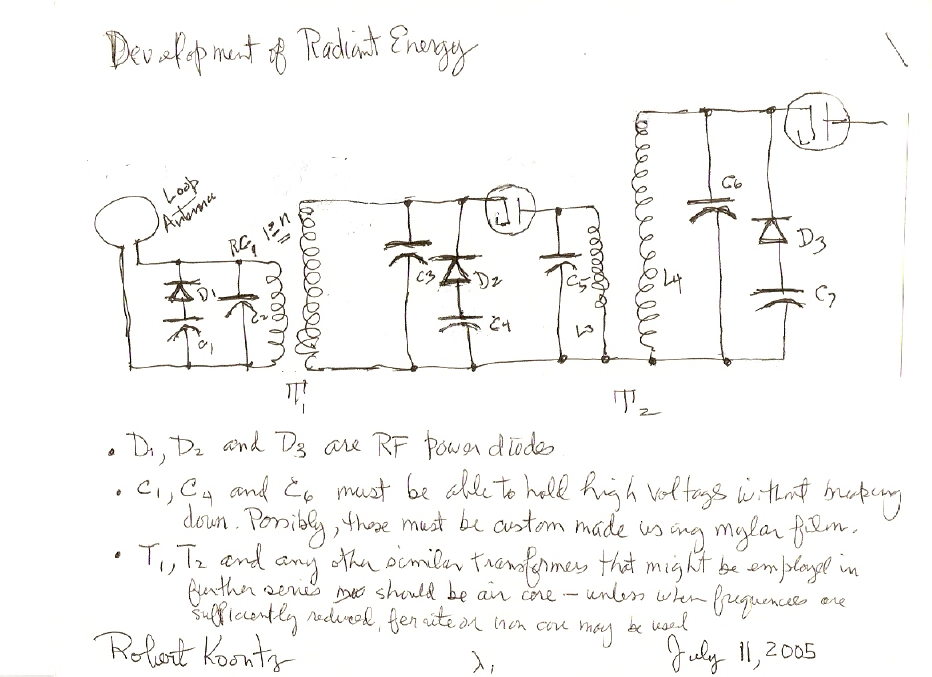 Development of Radiant Energy
Loop
Antenna
D1
C1
C2
T1
C3
D2
C4
C5
L3
L4
T2
C6
D3
C7
• D1, D2 and D3 are RF power diodes
• C1, C4 and C6 must be able to hold high voltages without breaking
down. Possibly, these must be custom made using mylar film.
• T1, T2 and any other similar transformers that might be employed in
further series should be air core – unless when frequencies are
sufficiently reduced, ferrite or iron core may be used
Robert Koontz
λ1
July 11, 2005